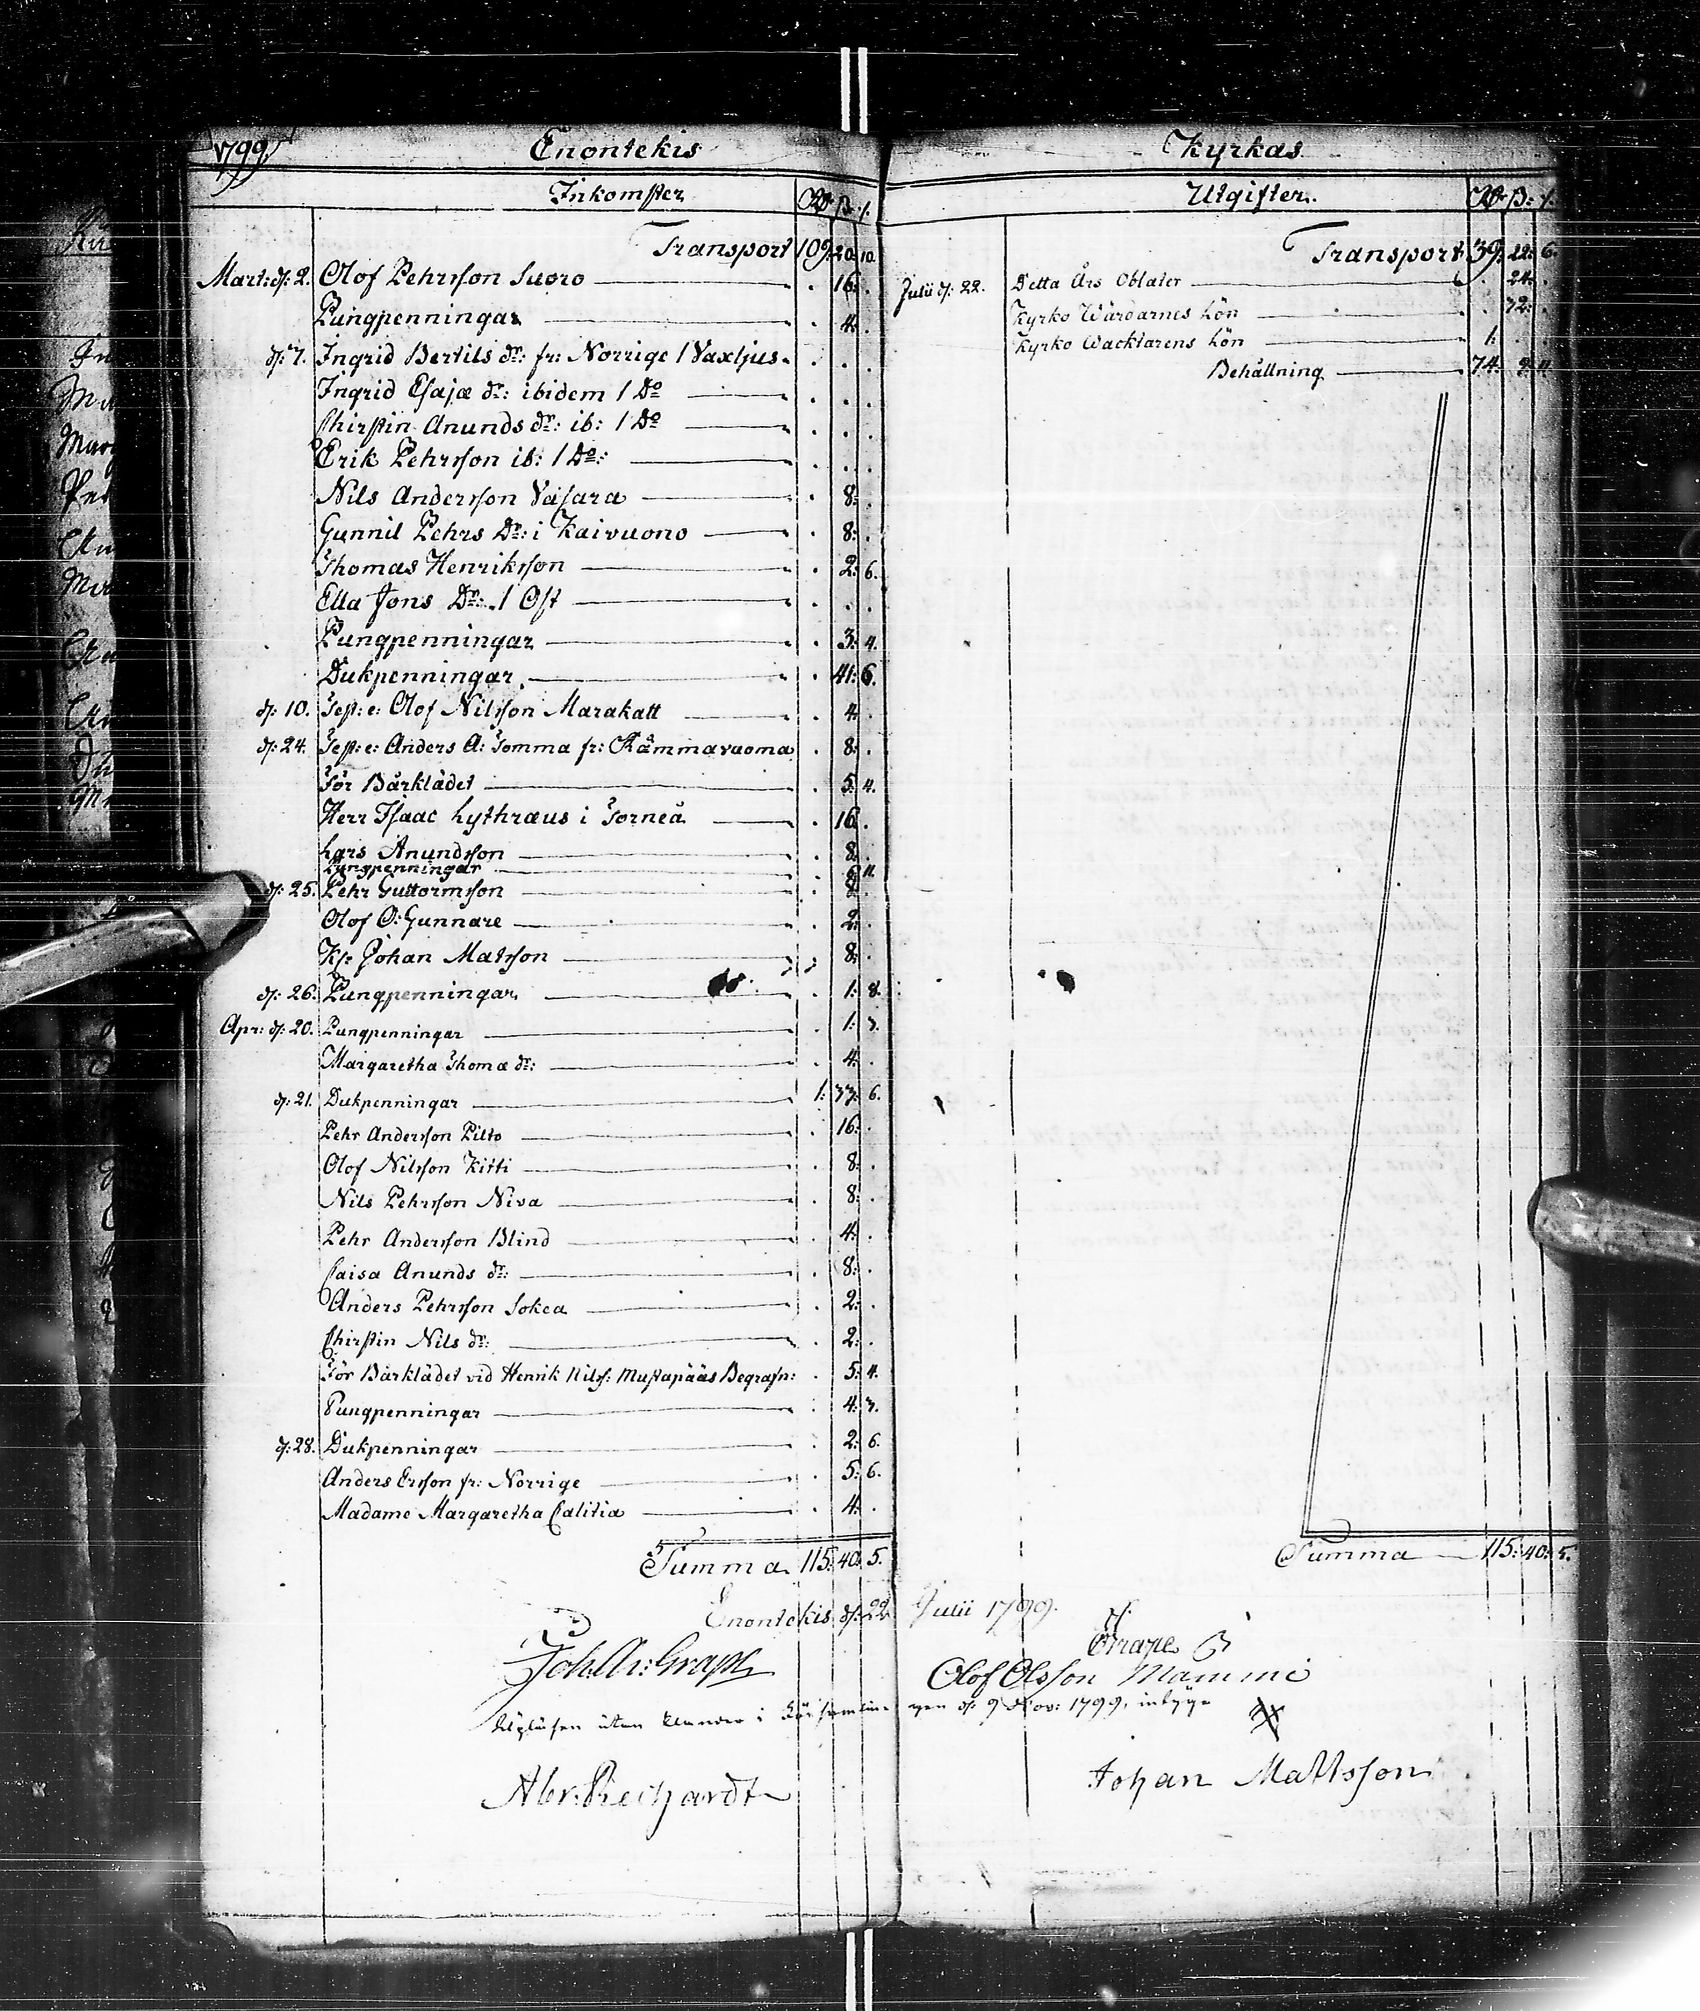 1799
Enontekis
Inkomster Rd ß: /.
Transport 109: 20. 10.
Mart: d: 2. Olof Pehrsson Suoro . 16. .
Pungpenningar . 4. .
d: 7. Ingrid Bertils dr: fr: Norrige 1 Vaxljus . . .
Ingrid Esajæ dr: ibidem 1 Do . . .
Chirstin Anunds dr: ib: 1 Do . . .
Erik Pehrsson ib: 1 Do: . . .
Nils Andersson Vasara . 8: .
Gunnil Pehrs Dr: i Kaivuono . 8: .
Thomas Henriksson . 2: 6.
Ella Jons Dr: 1 Ost . . .
Pungpenningar . 3: 4.
Dukpenningar . 41: 6.
d: 10. Test: e: Olof Nilsson Marakatt . 4. .
d: 24. Test: e: Anders A: Tomma fr: Rämmavuoma . 8: .
För Bårklädet . 5: 4.
Herr Isaac Lythræus i Torneå . 16. .
Lars Anundsson . 8: .
Pungpenningar . 11.
d: 25. Pehr Guttormsson . 8. .
Olof O: Gunnare . 2: .
Johan Matsson . 8: .
d: 26. Pungpenningar . 1: 8.
Apr: d: 20. Pungpenningar . 1: 3.
Margaretha Thomæ dr: . 4: .
d: 21. Dukpenningar 1: 33: 6.
Pehr Andersson Pilto . 16: .
Olof Nilsson Kitti . 8: .
Nils Pehrsson Niva . 8: .
Pehr Andersson Blind . 4: .
Caisa Anunds dr: . 8: .
Anders Pehrsson Sokea . 2: .
Chirstin Nils dr: . 2: .
För Bårklädet vid Henrik Nilss: Mustapääs Begrafn: . 5: 4.
Pungpenningar . 4: 3.
d: 28. Dukpenningar . 2: 6.
Anders Ersson fr: Norrige . 5: 6.
Madame Margaretha Calitia . 4: .
Summa 115: 40: 5.
Kyrkas
Utgifter. Rd ß: /.
Transport 39: 22: 6.
Julii d: 22. Detta Års Oblater . 24: .
Kyrko Wärdarnes Lön . 32: .
Kyrko Wacktarens Lön 1: . .
Behållning 74: 9: 11.
Summa 115: 40: 5.
Enontekis d: 22 Julii 1799.
Joh. Grape
E. Grape
Olof Olsson Mammi
Upläsen utan klander i Församlingen d: 9 Nov: 1799, intyga
Abr: Reichardt
Johan Mattsson